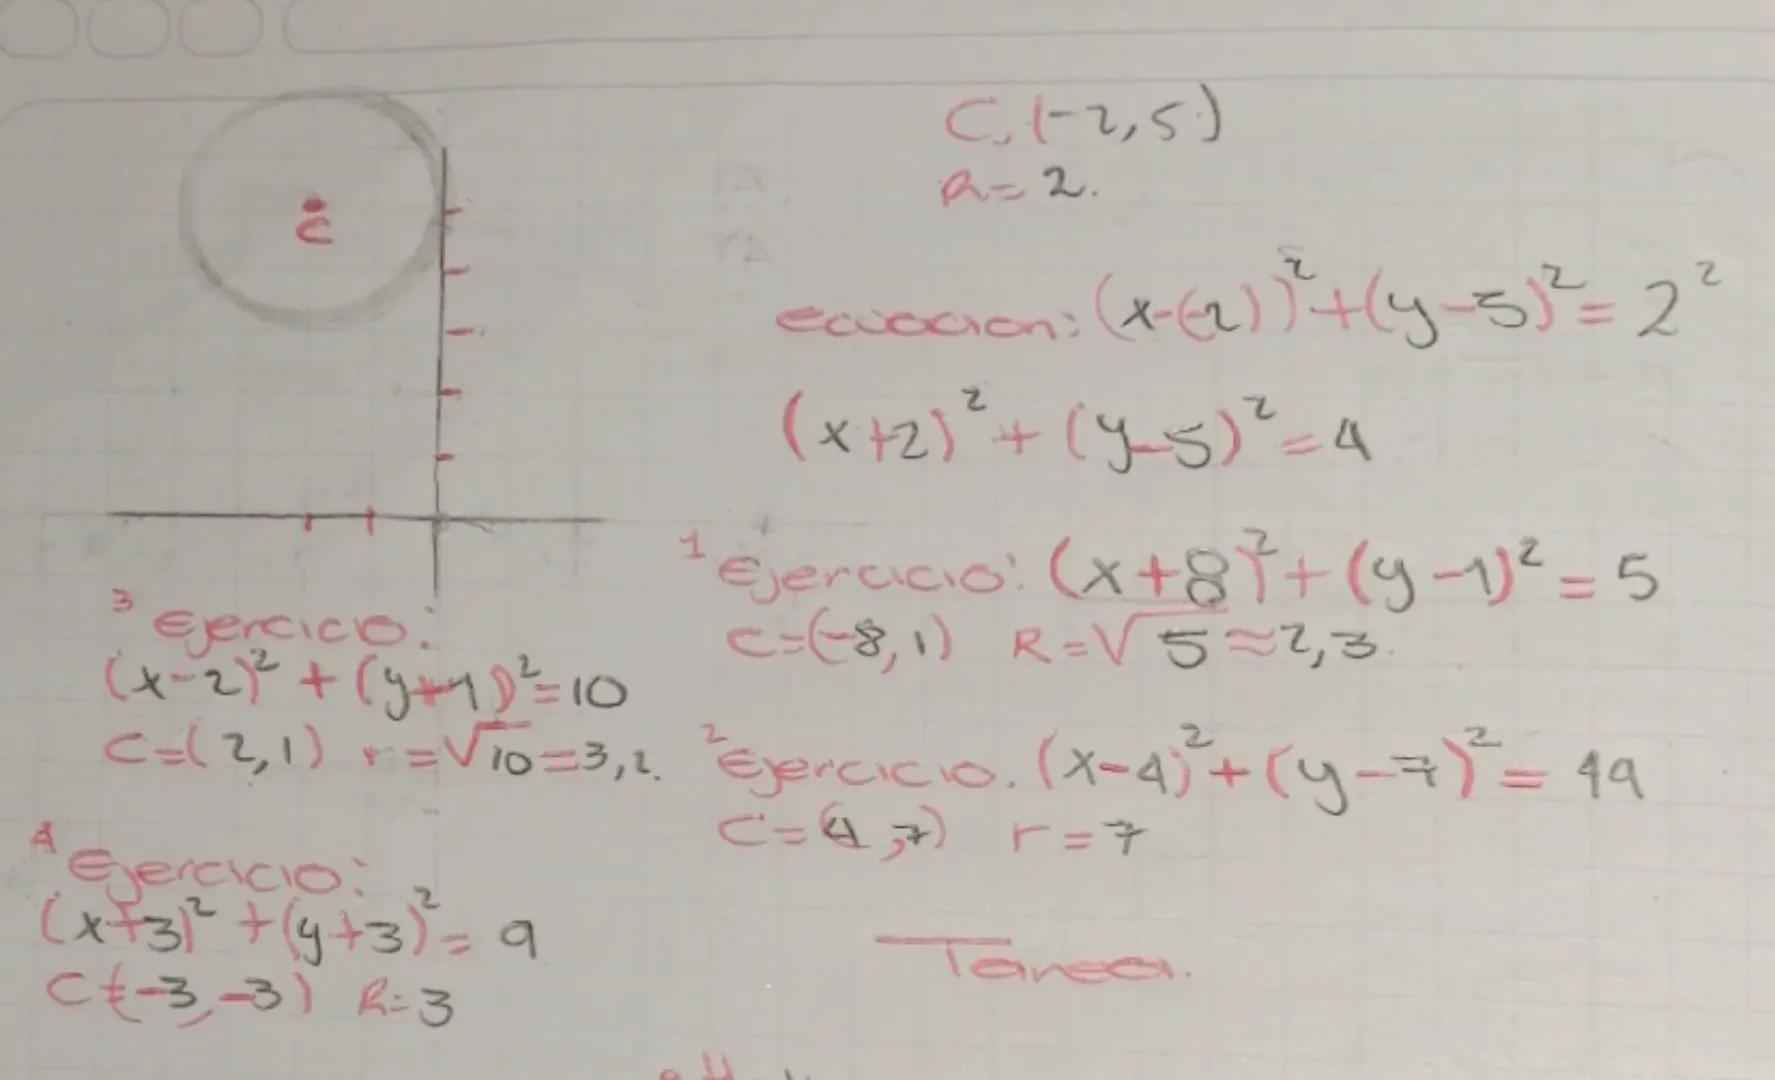 C, (-2, 5)
R = 2.
C
ecuacion: (x-(-2))² + (y-5)² = 2²
(x+2)² + (y-5)² = 4
1 Ejercicio: (x+8)² + (y-1)² = 5
C=(-8, 1) R=√5 ≈ 2,3.
2 Ejercicio. (x-4)² + (y-7)² = 49
C=(4,7) r=7
3 Ejercicio:
(x-2)² + (y+1)² = 10
C=(2,1) r=√10=3,2.
4 Ejercicio:
(x+3)² + (y+3)² = 9
C=(-3,-3) R=3
Tarea.